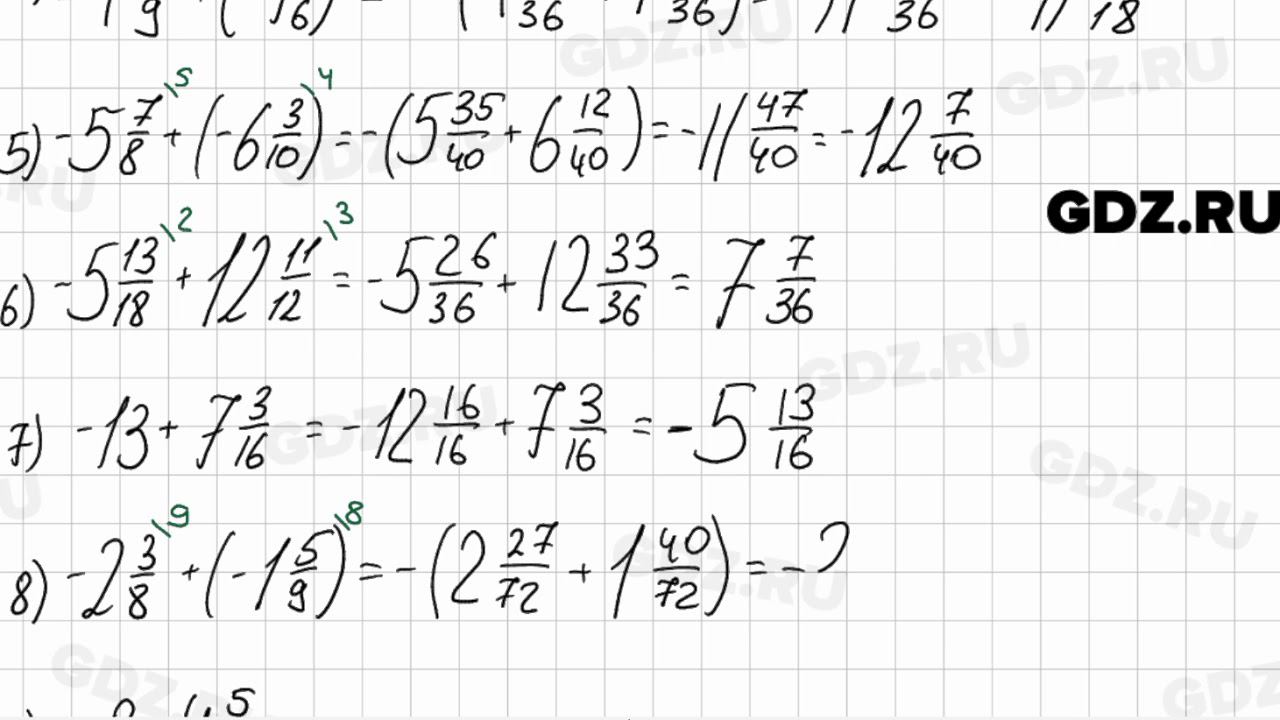 9 16) = 36 36) 11 36 11 18
5) -5 7/8 \5 + (-6 3/10) \4 = -(5 35/40 + 6 12/40) = -11 47/40 = -12 7/40
GDZ.RU
6) -5 13/18 \2 + 12 11/12 \3 = -5 26/36 + 12 33/36 = 7 7/36
7) -13 + 7 3/16 = -12 16/16 + 7 3/16 = -5 13/16
8) -2 3/8 \9 + (-1 5/9) \8 = -(2 27/72 + 1 40/72) = -2